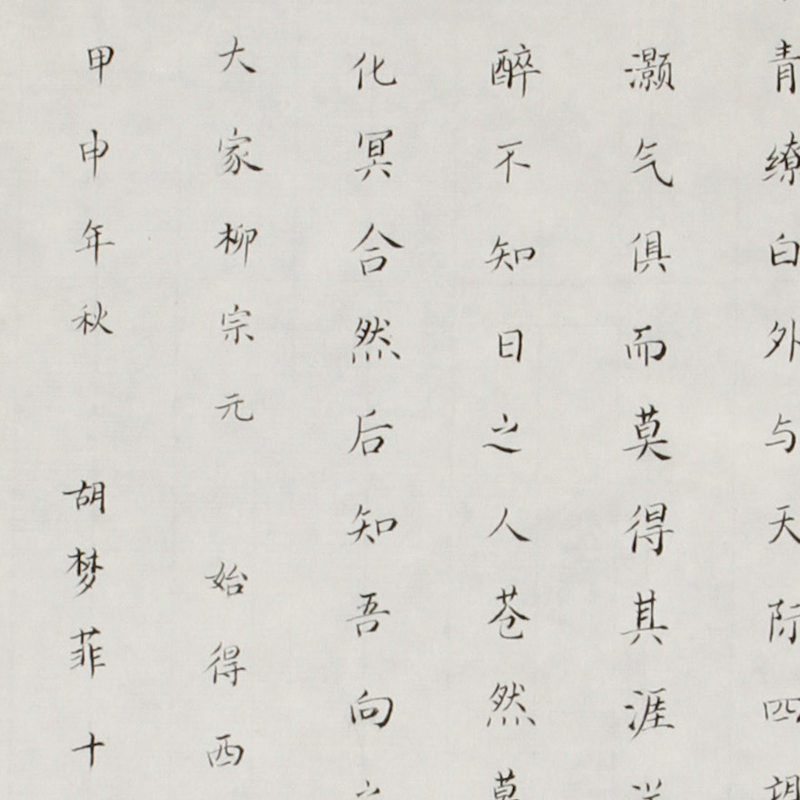 青缭白外与天际四望
灏气俱而莫得其涯
醉不知日之人苍然莫
化冥合然后知吾向之
大家柳宗元 始得西
甲申年秋 胡梦菲十